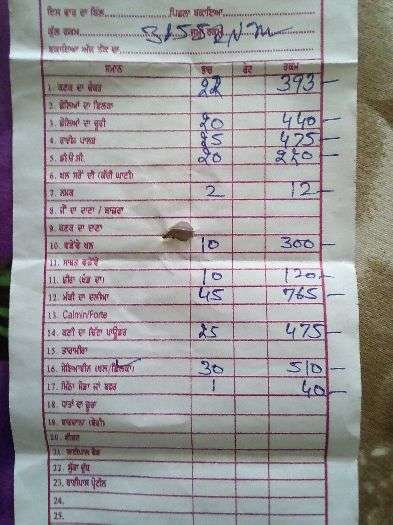 ਇਸ ਵਾਰ ਦਾ ਬਿੱਲ �ਪਿਛਲਾ ਬਕਾਇਆ
ਕੁੱਲ ਰਕਮ
ਬਕਾਇਆ ਅੱਜ ਤੱਕ ਦਾ
ਸਮਾਨ ਭਾਰ ਰੇਟ ਰਕਮ
1. ਕਣਕ ਦਾ ਚੋਕਰ 22 393
2. ਛੋਲਿਆਂ ਦਾ ਛਿਲਕਾ
3. ਛੋਲਿਆਂ ਦਾ ਚੂਰੀ 20 440
4. ਰਾਈਸ ਪਾਲਸ਼ 25 475
5. ਡੀ.ਓ.ਸੀ. 20 220
6. ਖਲ ਸਰੋਂ ਦੀ (ਕੱਚੀ ਘਾਣੀ)
7. ਨਮਕ 2 12
8. ਜੌਂ ਦਾ ਦਾਣਾ / ਬਾਜਰਾ
9. ਕਣਕ ਦਾ ਦਾਣਾ
10. ਵੜੇਵੇਂ ਖਲ 10 300
11. ਸਾਬਤ ਵੜੇਵੇਂ
11. ਸ਼ੀਰਾ (ਖੰਡ ਦਾ) 10 120
12. ਮੱਕੀ ਦਾ ਦਲੀਆ 45 765
13. Calmin/Forte
14. ਕਣੀ ਦਾ ਚਿੱਟਾ ਪਾਊਡਰ 25 475
15. ਤਾਰਾਮੀਰਾ
16. ਸੋਇਆਬੀਨ (ਖਲ/ਛਿਲਕਾ) 30 510
17. ਮਿੱਠਾ ਸੋਡਾ ਜਾਂ ਬਫਰ 1 40
18. ਧਾਤਾਂ ਦਾ ਚੂਰਾ
19. ਬਾਰਦਾਨਾ (ਬੋਰੀ)
20.
21. ਬਾਈਪਾਸ ਫੈਟ
22. ਸੁੱਕਾ ਦੁੱਧ
23. ਬਾਈਪਾਸ ਪ੍ਰੋਟੀਨ
24.
25.